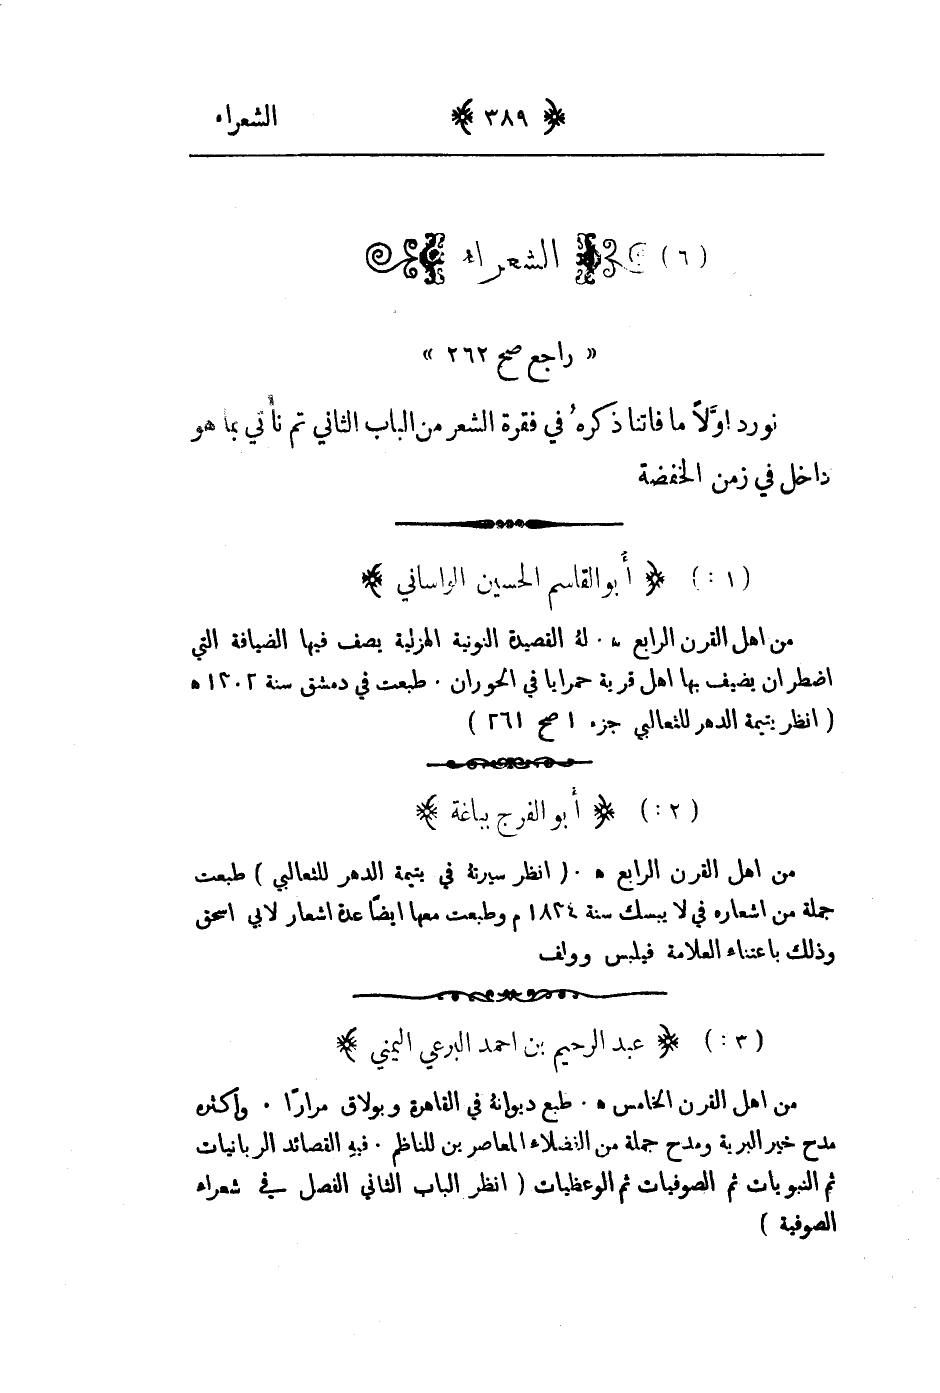 الشعراء ﴿ ٣٨٩ ﴾
( ٦ ) الشعراء
« راجع صح ٢٦٢ »
نورد اوَّلاً ما فاتنا ذكرهُ في فقرة الشعر من الباب الثاني ثم نأتي بما هو
داخل في زمن الخفضة
( ١ : ) ﴿ أبو القاسم الحسين الواساني ﴾
من اهل القرن الرابع ھ · لهُ القصيدة النونية الهزلية يصف فيها الضيافة التي
اضطر ان يضيف بها اهل قرية حمرايا في الحوران · طبعت في دمشق سنة ١٣٠٢ ھ
( انظر يتيمة الدهر للثعالبي جزء ١ صح ٢٦١ )
( ٢ : ) ﴿ أبو الفرج ببغاة ﴾
من اهل القرن الرابع ھ · ( انظر سيرتهُ في يتيمة الدهر للثعالبي ) طبعت
جملة من اشعاره في لايبسك سنة ١٨٣٤ م وطبعت معها ايضًا عدة اشعار لابي اسحق
وذلك باعتناء العلامة فيلبس وولف
( ٣ : ) ﴿ عبد الرحيم بن احمد البرعي اليمني ﴾
من اهل القرن الخامس ھ · طبع ديوانهُ في القاهرة وبولاق مرارًا · واكثره
مدح خير البرية ومدح جملة من الفضلاء المعاصرين للناظم · فيهِ القصائد الربانيات
ثم النبويات ثم الصوفيات ثم الوعظيات ( انظر الباب الثاني الفصل في شعراء
الصوفية )